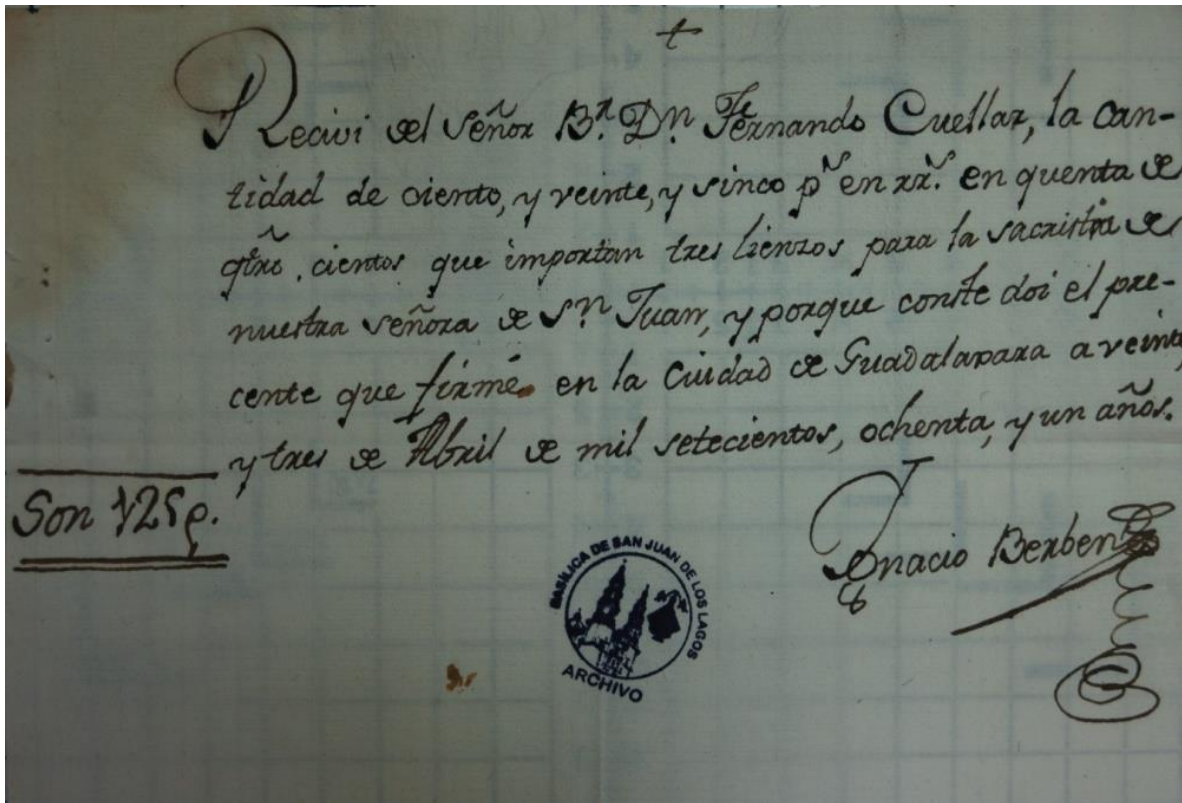 †
Recivi del Señor B.r D.n Fernando Cuellar, la can-
tidad de ciento, y veinte, y sinco p.s en rr.s en quenta de
qtro. cientos que importan tres lienzos para la sacristia de
nuestra señora de S.n Juan, y porque conste doi el pre-
cente que firmé en la Ciudad de Guadalaxara a veinte,
y tres de Abril de mil setecientos, ochenta, y un años.
Son 125 p.
Ignacio Berben
BASÍLICA DE SAN JUAN DE LOS LAGOS
ARCHIVO